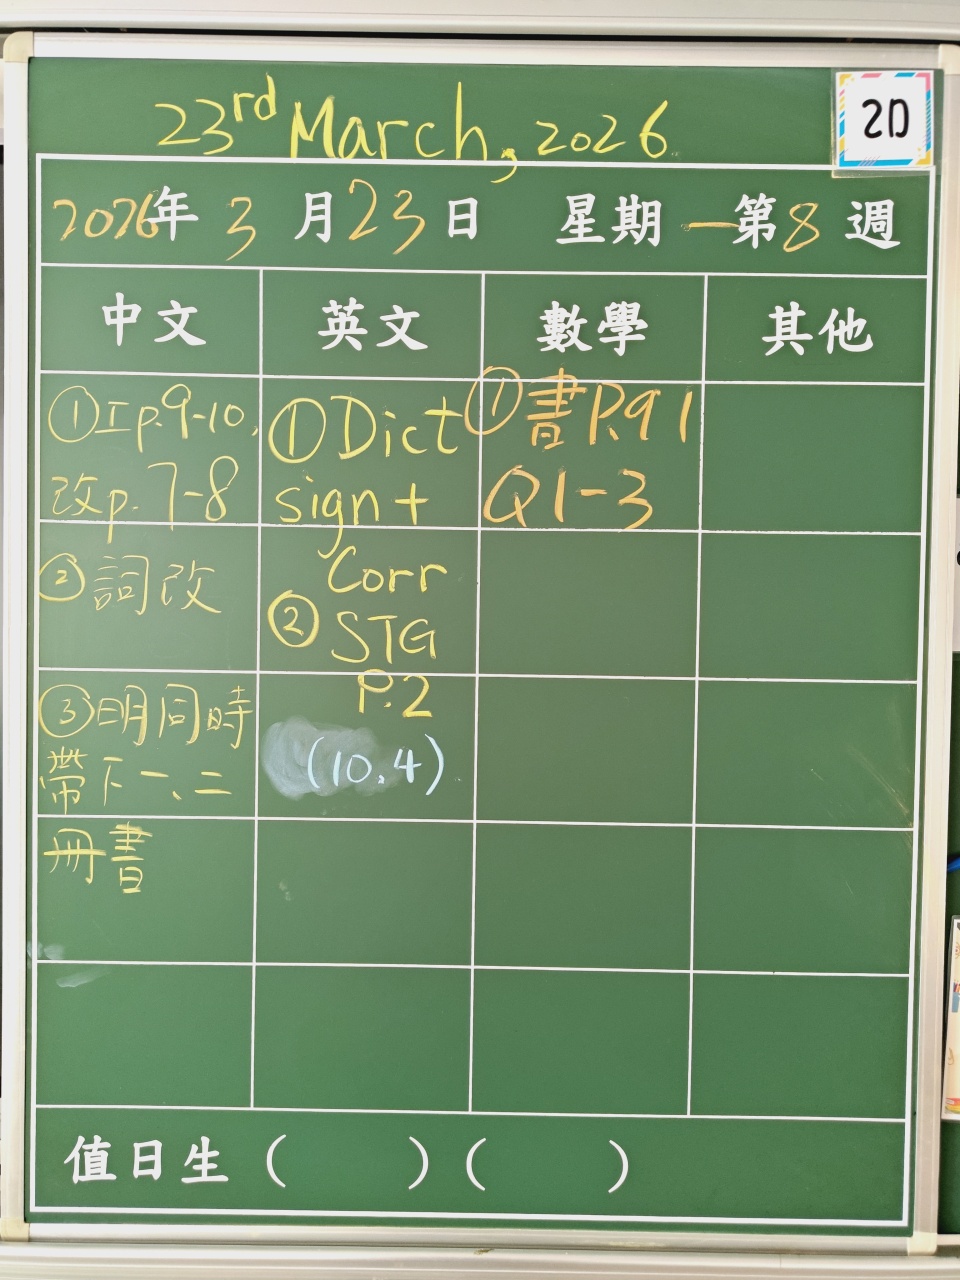 23rd March, 2026
2D
2026年 3 月 23 日 星期 一 第 8 週
中文 英文 數學 其他
①工p.9-10,
改p.7-8
②詞改
③明同時
帶下一、二
冊書
①Dict
sign +
Corr
②STG
P.2
(10.4)
①書P.91
Q1-3
值日生 ( ) ( )